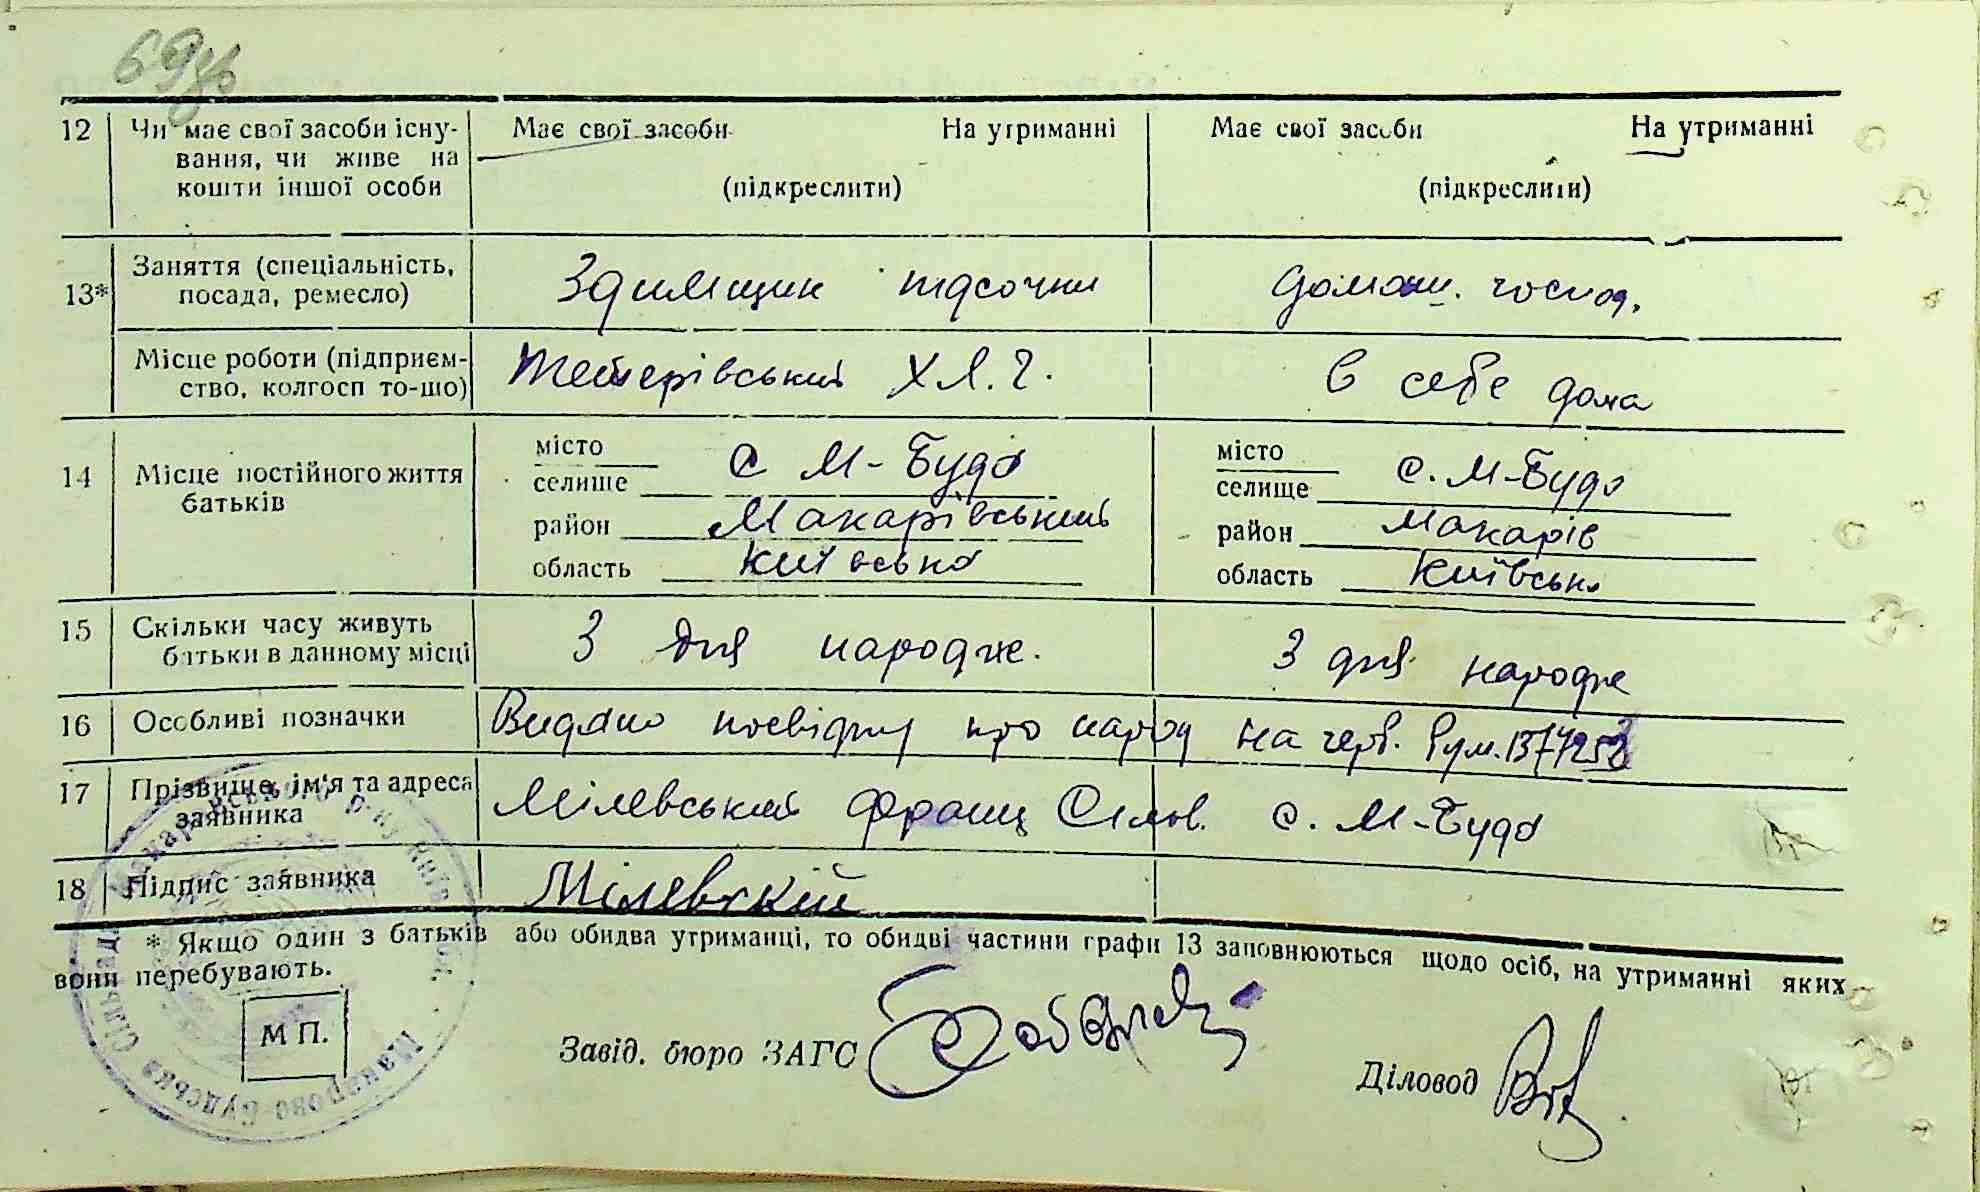 69зв
12 Чи має свої засоби існу- Має свої засоби На утриманні Має свої засоби На утриманні
вання, чи живе на
кошти іншої особи (підкреслити) (підкреслити)
13* Заняття (спеціальність, посада, ремесло) Здимщик підсочки домашн. господ.
Місце роботи (підприєм- Тетерівський Х.Л.Г. в себе дома
ство, колгосп то-що)
14 Місце постійного життя батьків
місто с М-Буда місто с. М-Буда
селище селище
район Макарівський район Макарів
область Київська область Київська
15 Скільки часу живуть 3 дня народже. 3 дня народже
батьки в данному місці
16 Особливі позначки Видано посвідку про народ на черв.
17 Прізвище, ім'я та адреса Мілевський Франц с. М-Буда
заявника
18 Підпис заявника Мілевский
* Якщо один з батьків або обидва утриманці, то обидві частини графи 13 заповнюються щодо осіб, на утриманні яких
вони перебувають.
М П.
Завід. бюро ЗАГС
Діловод